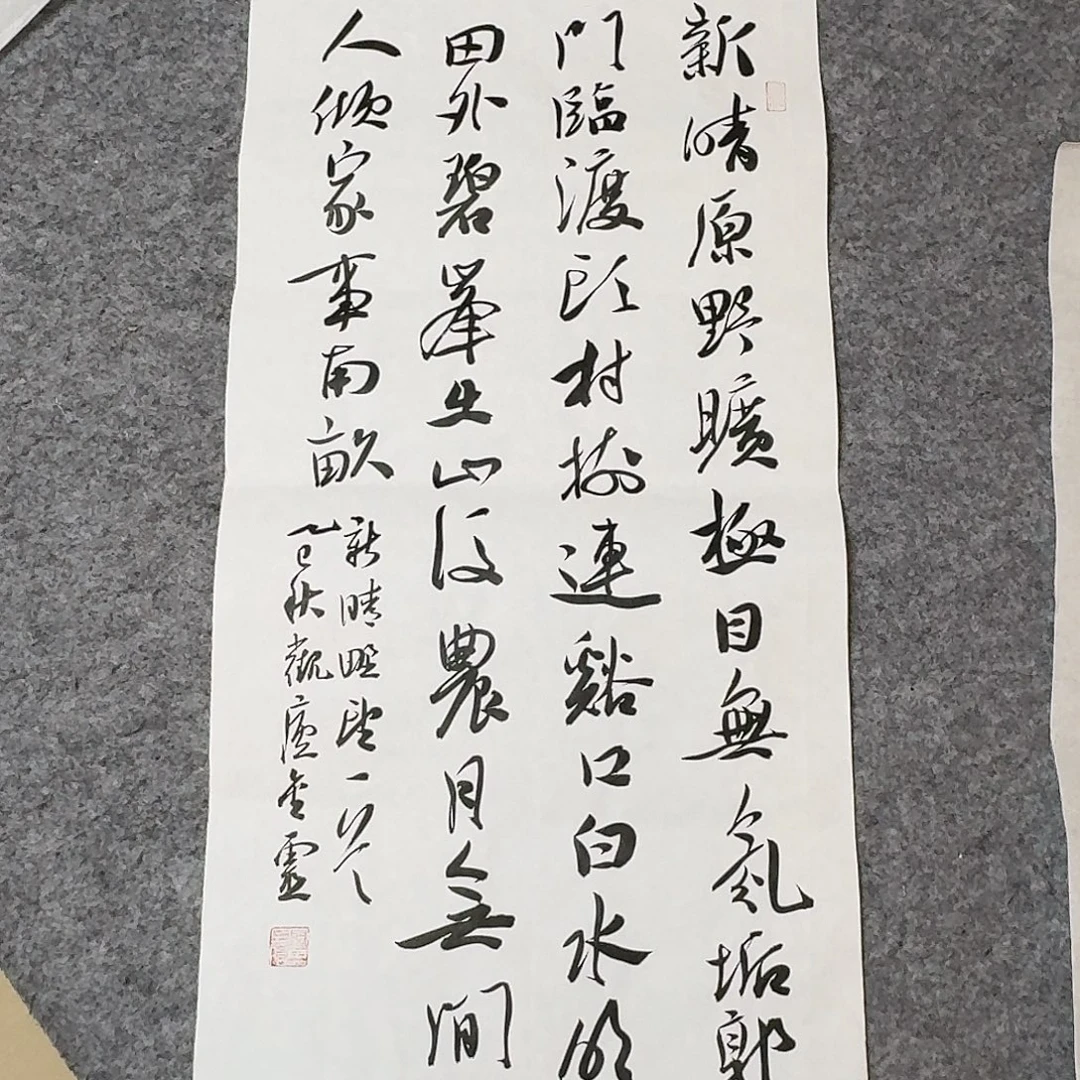 新晴原野曠極目無氛垢郭
門臨渡頭村樹連谿口白水明
田外碧峯出山後農月無閒
人傾家事南畝
新晴野望一首
乙巳秋觀廬金靈